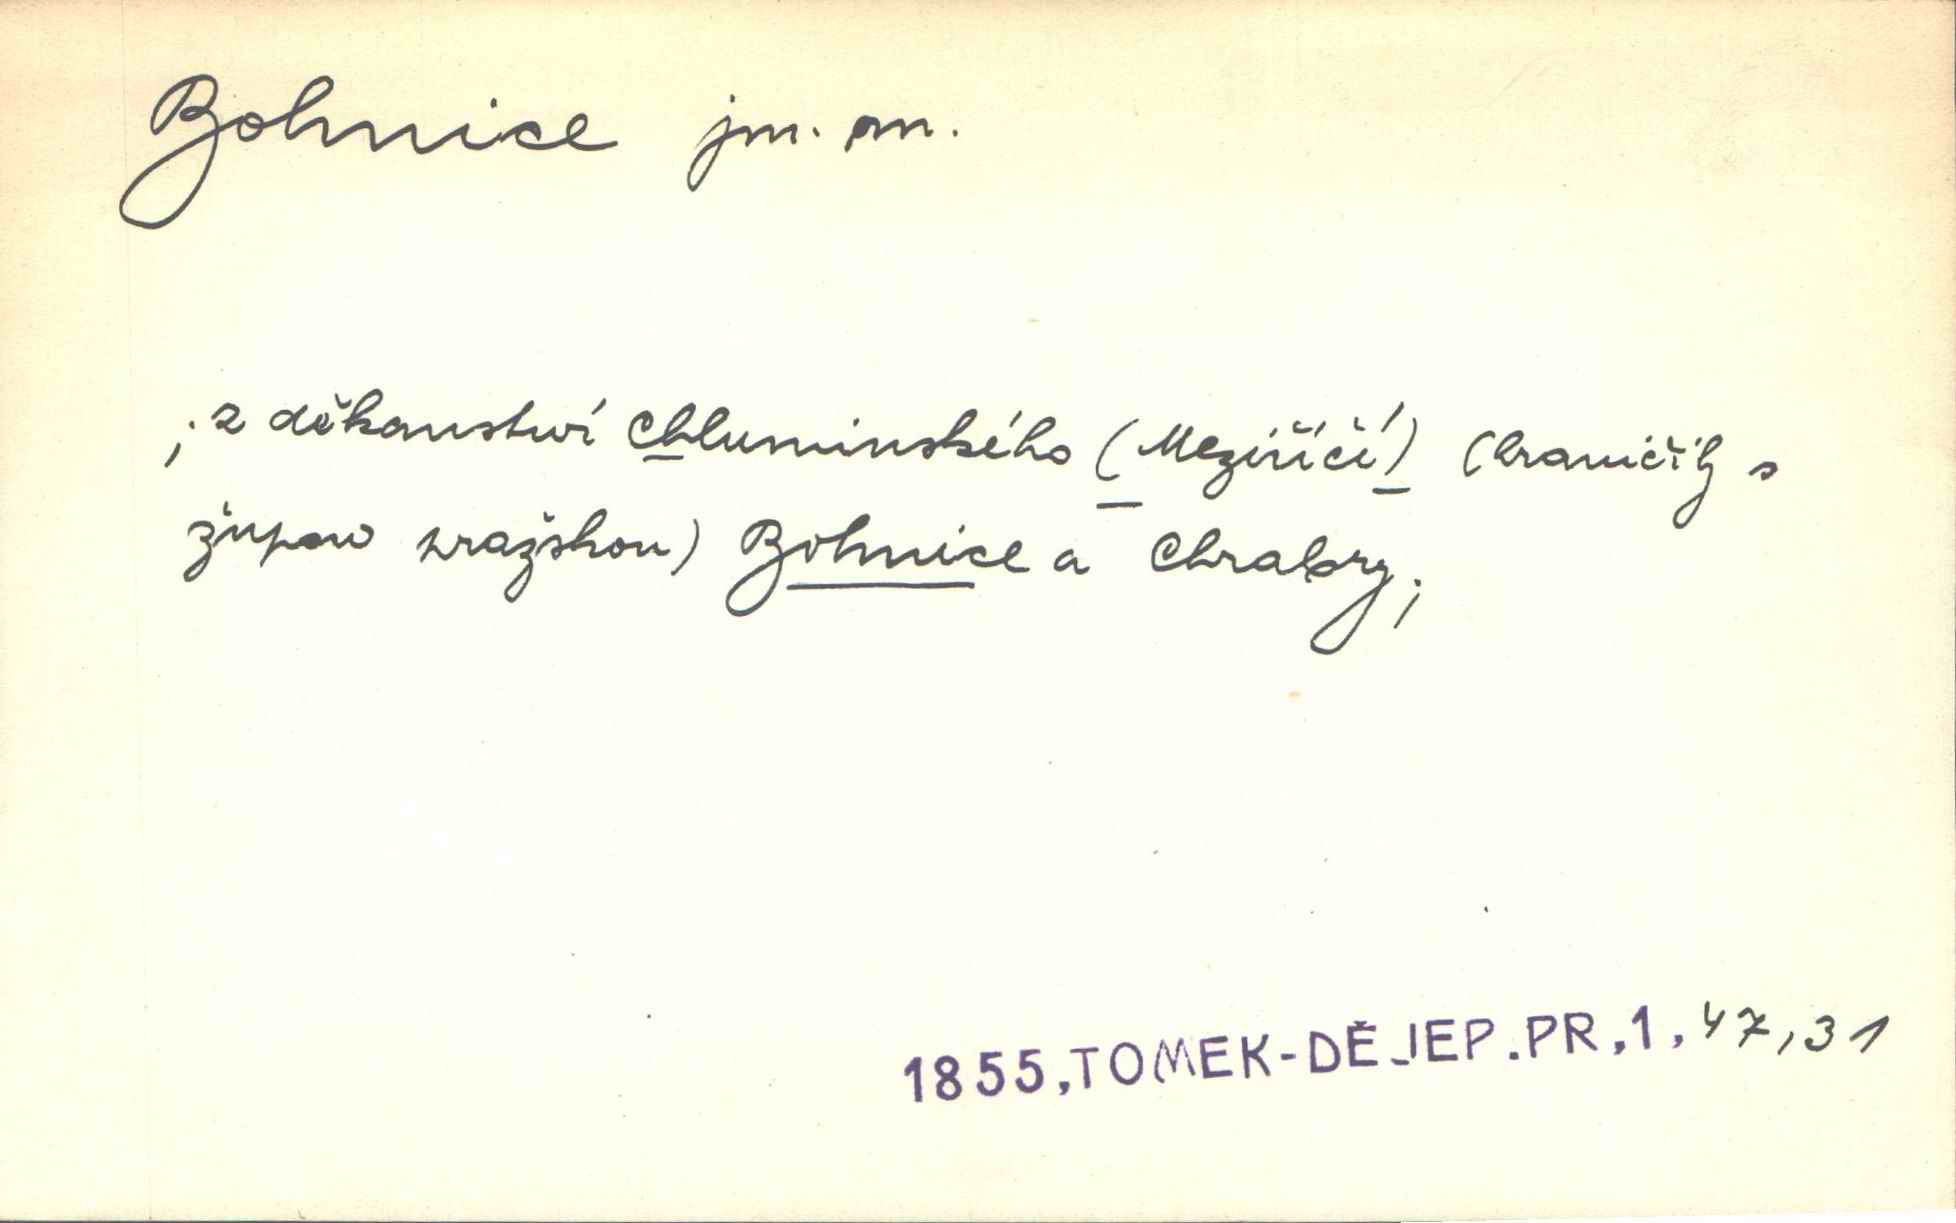 Bohnice jm. m.
; z děkanství Chluminského (Meziříčí) (hraničíly s
župou pražskou) Bohnice a Chrabry;
1855,TOMEK-DĚJEP.PR,1,47,31